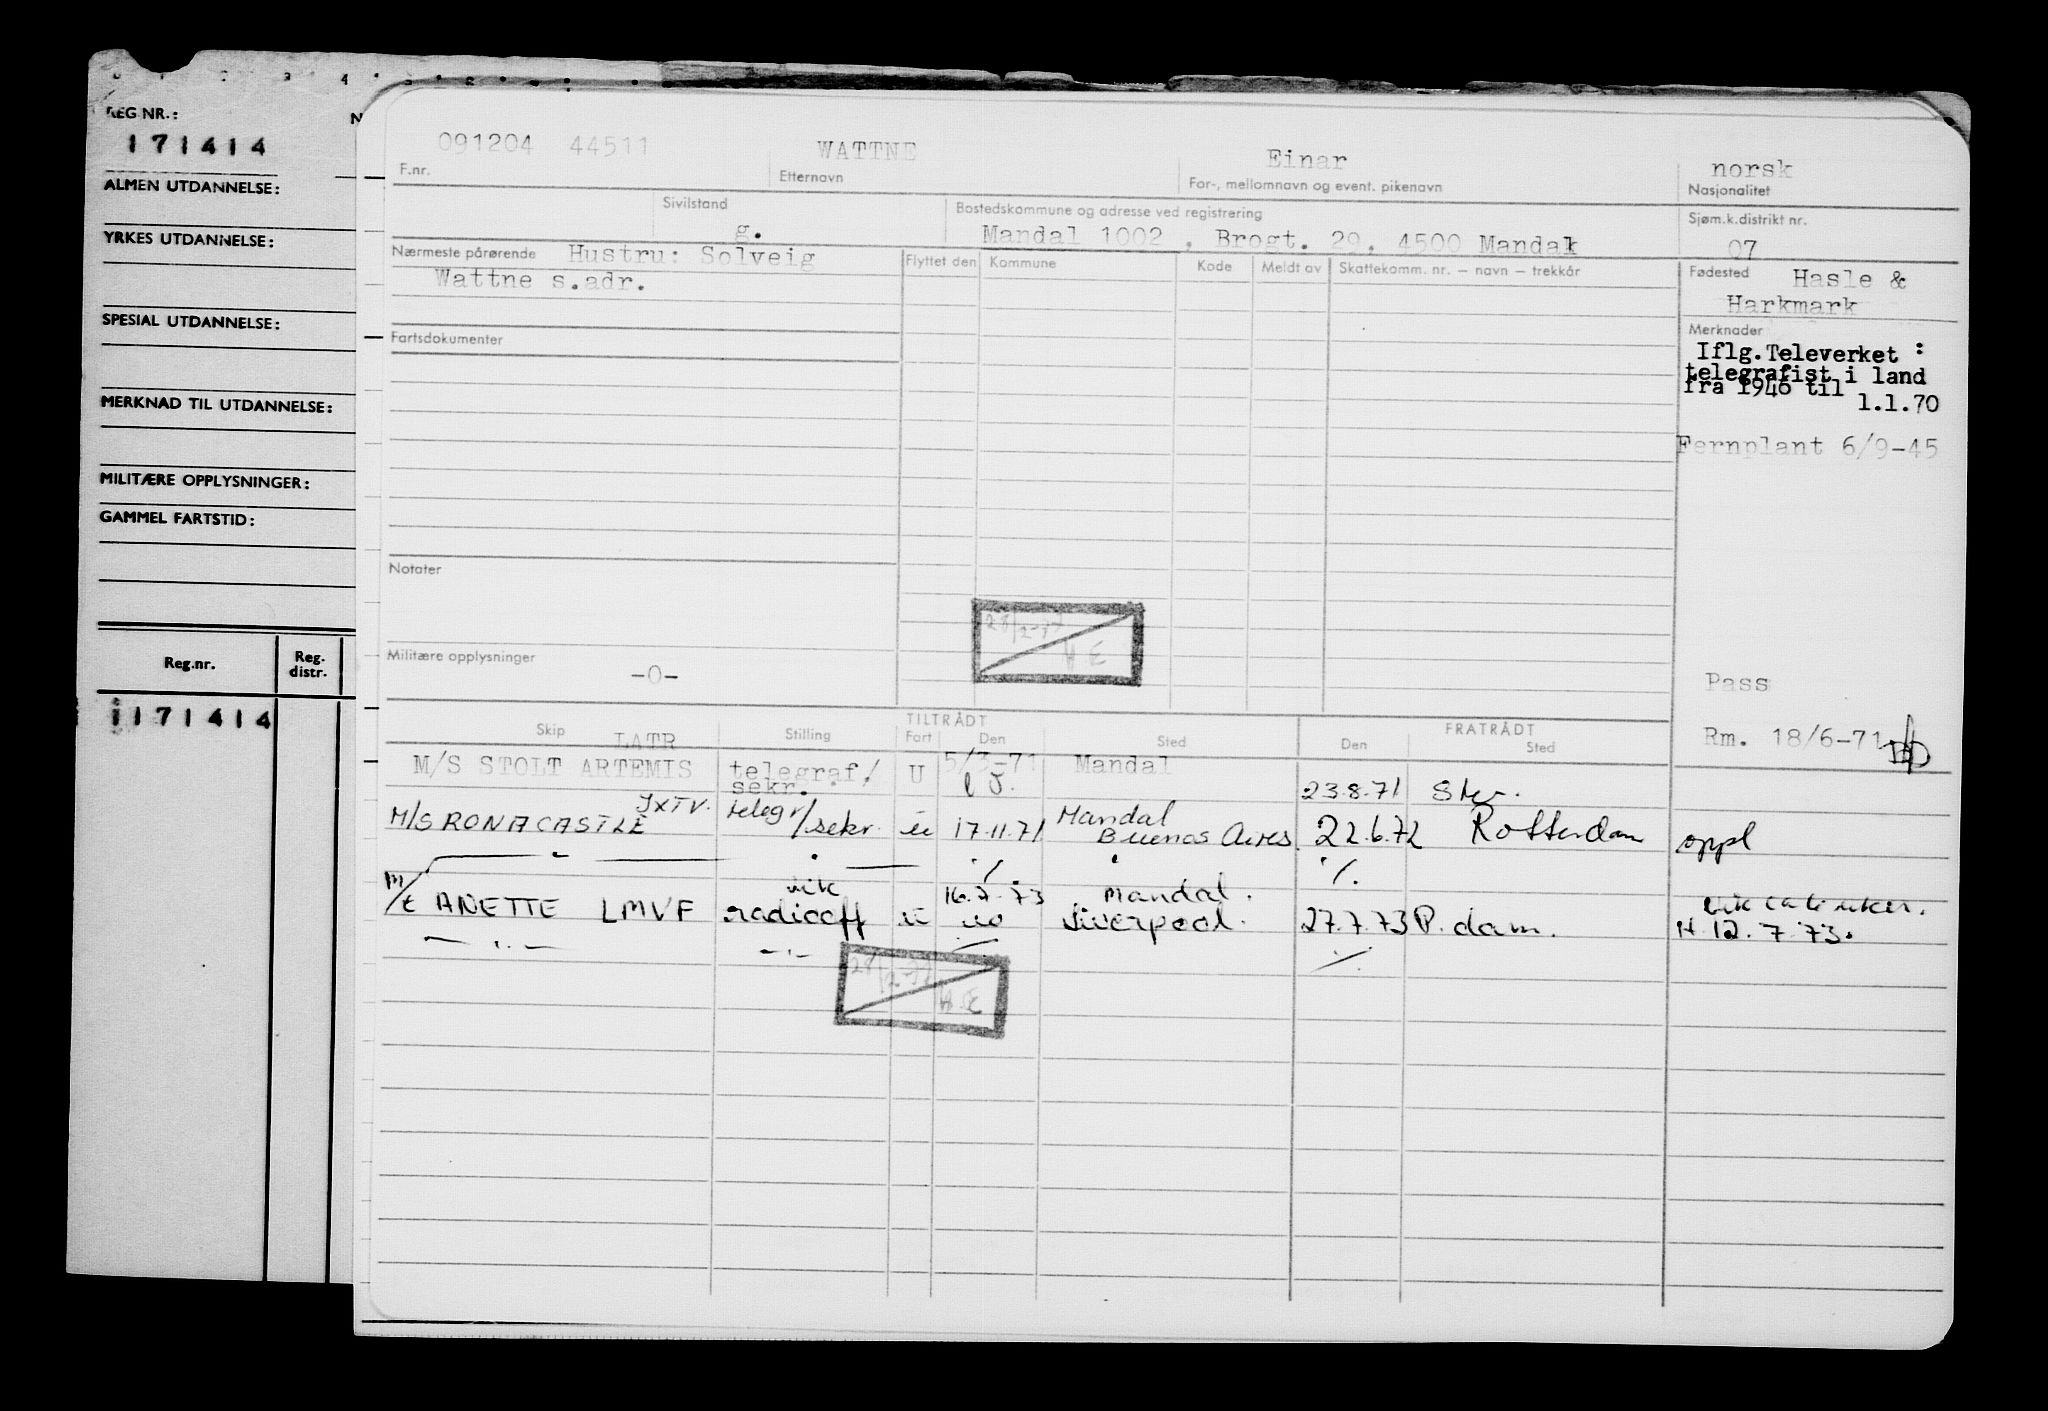 REG NR.:
171414
ALMEN UTDANNELSE:
YRKES UTDANNELSE:
SPESIAL UTDANNELSE:
MERKNAD TIL UTDANNELSE:
MILITÆRE OPPLYSNINGER:
GAMMEL FARTSTID:
Reg.nr. Reg. distr.
171414
091204 44511 WATTNE Einar norsk
F.nr. Etternavn For-, mellomnavn og event. pikenavn Nasjonalitet
Sivilstand Bostedskommune og adresse ved registrering Sjøm.k.distrikt nr.
g. Mandal 1002 , Brogt. 29, 4500 Mandal 07
Nærmeste pårørende Hustru: Solveig Flyttet den Kommune Kode Meldt av Skattekomm. nr. – navn – trekkår Fødested Hasle &
Wattne s.adr. Harkmark
Fartsdokumenter Merknader
Iflg.Televerket :
telegrafist i land
fra 1946 til
1.1.70
Fernplant 6/9-45
Notater
28/2-77
H E
Militære opplysninger
-0-
Pass
Rm. 18/6-71
Skip Stilling TILTRÅDT FRATRÅDT
Fart Den Sted Den Sted
LATR
M/S STOLT ARTEMIS telegraf/ U 5/3-71 Mandal
sekr. 23.8.71
JXTV.
M/S RONACASTLE telegr/sekr. U 17.11.71 Mandal
Buenos Aires. 22.6.72 Rotterdam oppl
vik 16.7.73 Mandal.
M/t ANETTE LMVF radiooff U Liverpool. 27.7.73 R.dam. H. 12.7.73.
28/2-77
H.E